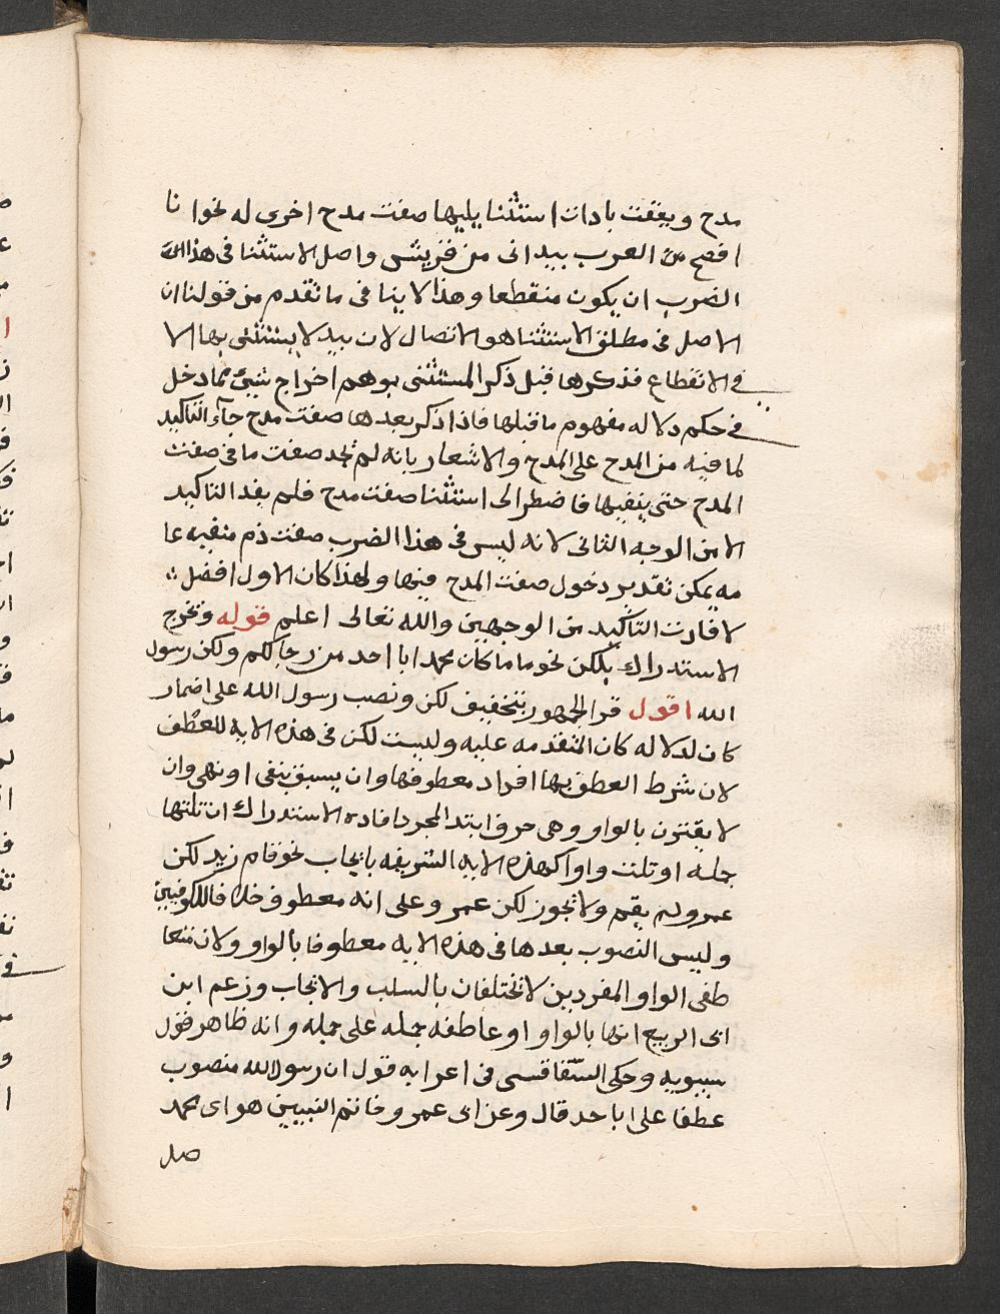 مدح ويعقفت بادات استثنا يليها صفت مدح اخرى له نحو انا
افصح من العرب بيد انى من قريش واصل الاستثنا فى هذا
الضرب ان يكون منقطعا وهذا لا ينا فى ما تقدم من قولنا ان
الاصل فى مطلق الاستثنا هو الاتصال لان بيد لا يستثنى بها الا
فى الانقطاع فذكرها قبل ذكر المستثنى يوهم اخراج شيئ مما دخل
فى حكم دلاله مفهوم ما قبلها فاذا ذكر بعدها صفت مدح جآء التاكيد
لما فيه من المدح على المدح والاشعار بانه لم تجد صفت ما فى صفت
المدح حتى ينفيها فاضطر الى استثنا صفت مدح فلم يفد التاكيد
الا من الوجه الثانى لانه ليس فى هذا الضرب صفت ذم منفيه عا
مه يمكن تقدير دخول صفت المدح فيها ولهذا كان الاول افضل
لافادت التاكيد من الوجهين والله تعالى اعلم قوله وتخرج
الاستدراك بلكن نحو ما ما كان محمد ابا احد من رجالكم ولكن رسول
الله اقول قرا الجمهور بتخفيف لكن ونصب رسول الله على اضمار
كان لدلاله كان المتقدمه عليه وليست لكن فى هذه الايه للعطف
لان شرط العطف بها افراد معطوفها وان يسبق بنفى او نهى وان
لا يقترن بالواو وهى حرف ابتدا لمجرد افاده الاستدراك ان تلتها
جمله او تلت واوا كهذه الايه الشريفه بايجاب نحو قام زيد لكن
عمرو لم يقم ولا تجوز لكن عمر وعلى انه معطوف خلافا للكوفيين
وليس النصوب بعدها فى هذه الايه معطوفا بالواو ولان متعا
طفى الواو المفردين لا تختلفان بالسلب والايجاب وزعم ابن
ابى الربيع انها بالواو او عاطفه جمله على جمله وانه ظاهر قول
سيبويه وحكى السفاقسى فى اعرابه قول ان رسول الله منصوب
عطفا على ابا احد قال وعن ابى عمر وخاتم النبيين هو اى محمد
صل